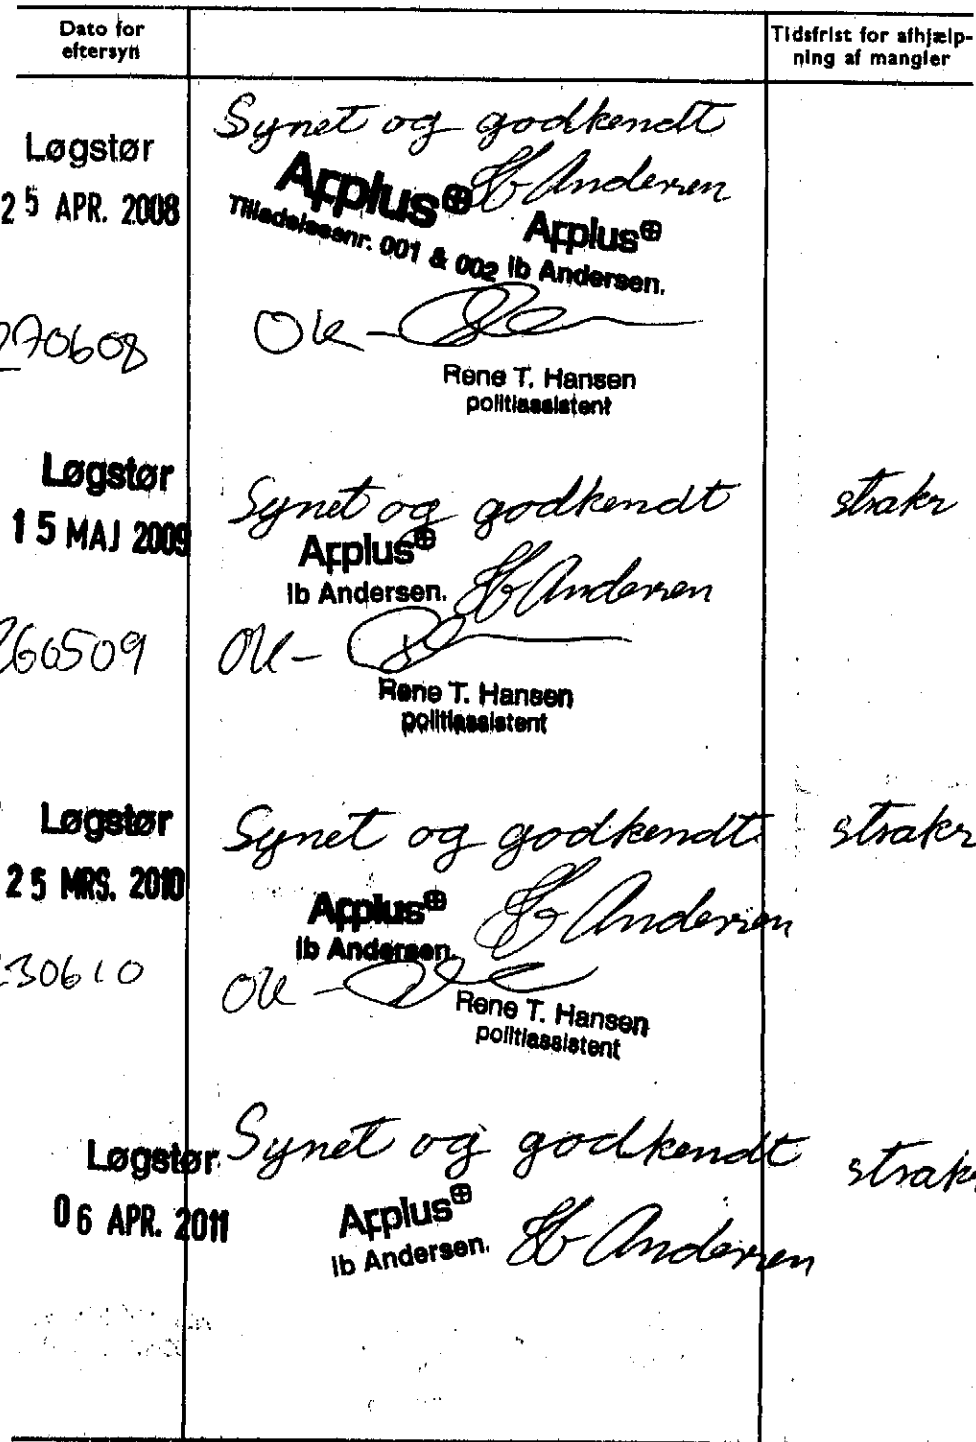 Dato for
eftersyn
Tidsfrist for afhjælp-
ning af mangler
Løgstør
25 APR. 2008
Synet og godkendt
Ib Andersen
Applus⊕
Tilladelsesnr. 001 & 002
Applus⊕
Ib Andersen.
270608
Ok-
Rene T. Hansen
politiassistent
Løgstør
15 MAJ 2009
Synet og godkendt
straks
Applus⊕
Ib Andersen.
Ib Andersen
260509
Ok-
Rene T. Hansen
politiassistent
Løgstør
25 MRS. 2010
Synet og godkendt
straks
Applus⊕
Ib Andersen.
Ib Andersen
230610
Ok-
Rene T. Hansen
politiassistent
Løgstør
06 APR. 2011
Synet og godkendt
straks
Applus⊕
Ib Andersen.
Ib Andersen